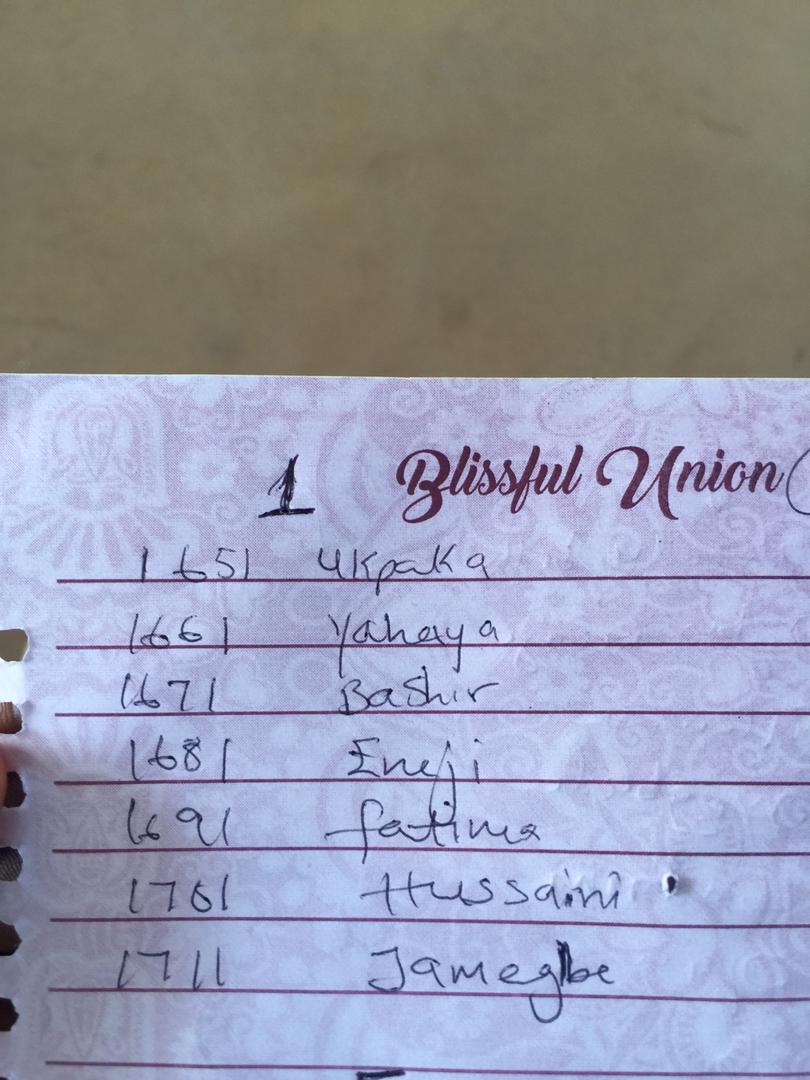 1 Blissful Union
1651 Ukpaka
1661 Yahaya
1671 Bashir
1681 Eneji
1691 fatima
1701 Hussaini
1711 Jamegbe